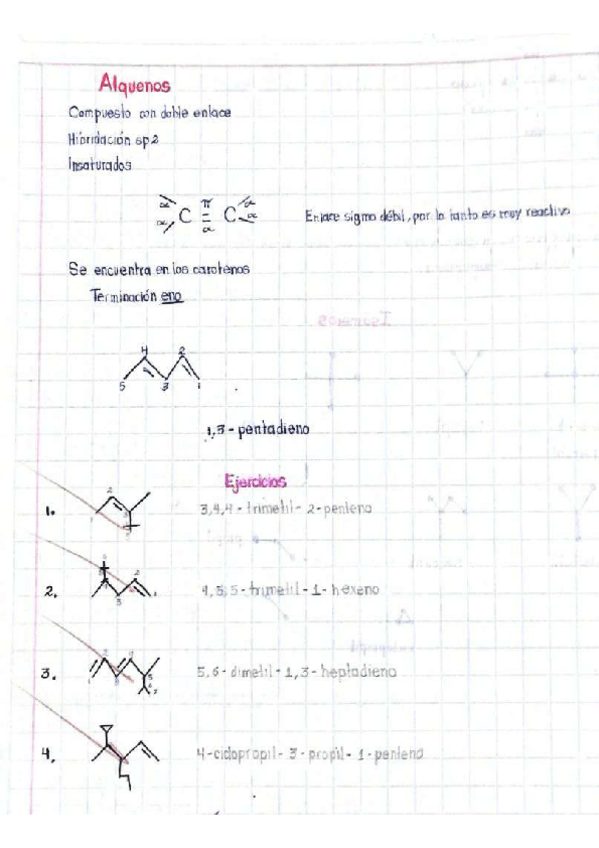 Alquenos
Compuesto con doble enlace
Hibridación sp2
Insaturados
π
C = C
Enlace sigma débil, por lo tanto es muy reactivo
Se encuentra en los carotenos
Terminación eno
4 2
5 3 1
1,3 - pentadieno
Ejercicios
1. 3,4,4 - trimetil - 2 - penteno
2. 4,5,5 - trimetil - 1 - hexeno
3. 5,6 - dimetil - 1,3 - heptadieno
4. 4-ciclopropil - 3 - propil - 1 - penteno